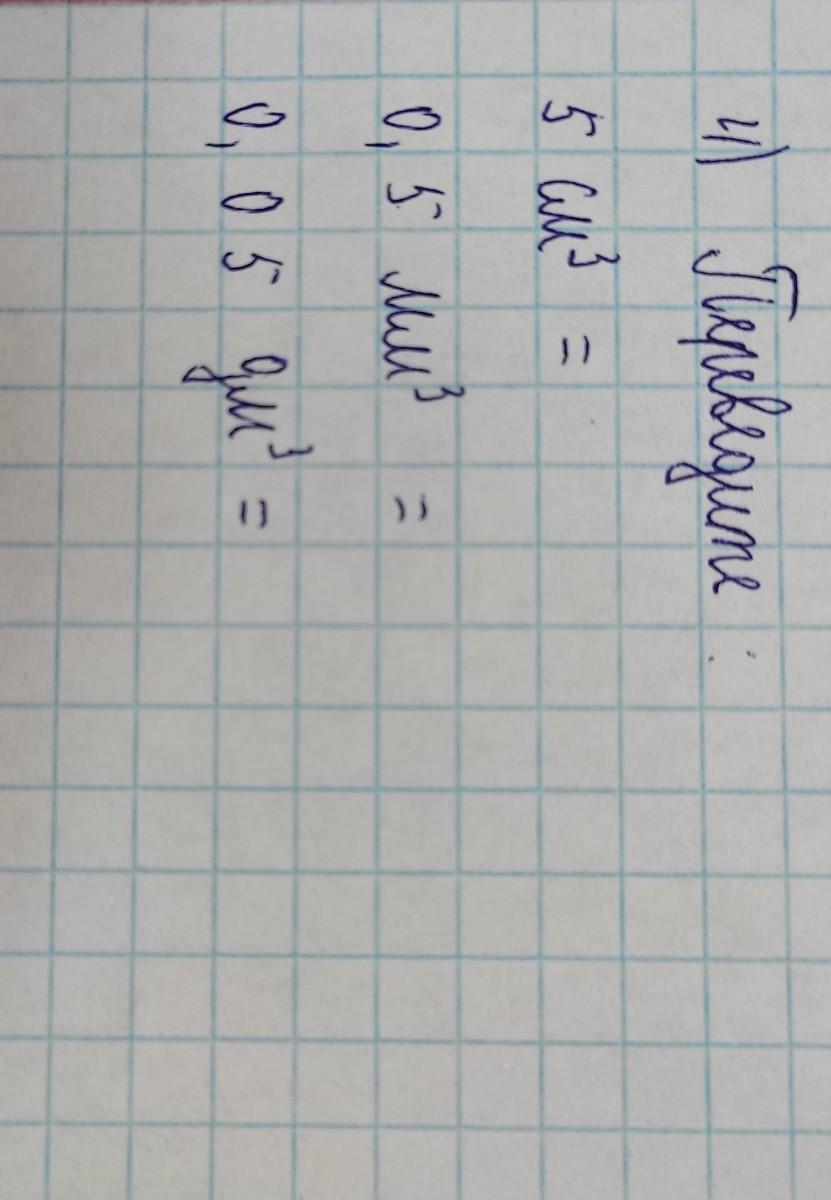 4) Переведите :
5 см³ =
0,5 мм³ =
0,05 дм³ =